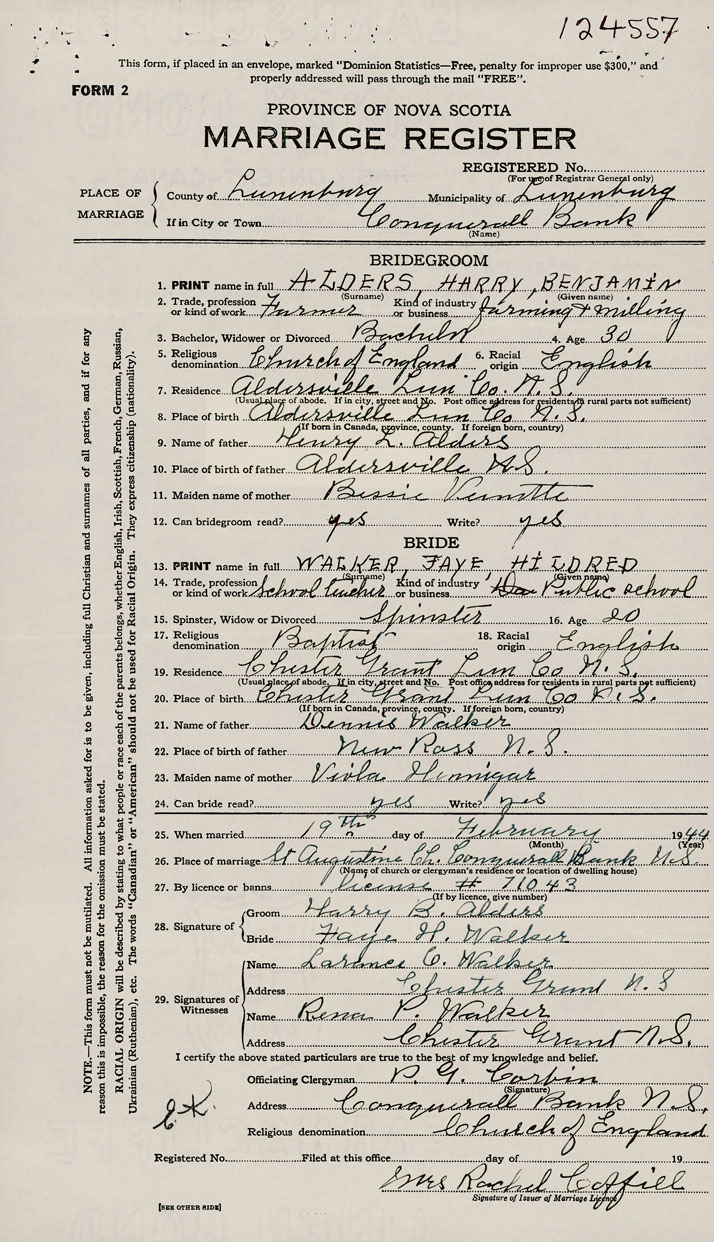 124557
This form, if placed in an envelope, marked "Dominion Statistics—Free, penalty for improper use $300," and
properly addressed will pass through the mail "FREE".
FORM 2
PROVINCE OF NOVA SCOTIA
MARRIAGE REGISTER
REGISTERED No.
(For use of Registrar General only)
PLACE OF MARRIAGE
County of Lunenburg Municipality of Lunenburg
If in City or Town Conquerall Bank
(Name)
BRIDEGROOM
1. PRINT name in full ALDERS, HARRY, BENJAMIN
(Surname) (Given name)
2. Trade, profession or kind of work Farmer Kind of industry or business farming & milling
3. Bachelor, Widower or Divorced Bachelor 4. Age 30
5. Religious denomination Church of England 6. Racial origin English
7. Residence Aldersville Lun Co. N.S.
(Usual place of abode. If in city, street and No. Post office address for residents in rural parts not sufficient)
8. Place of birth Aldersville Lun Co N.S.
(If born in Canada, province, county. If foreign born, country)
9. Name of father Henry L. Alders
10. Place of birth of father Aldersville N.S.
11. Maiden name of mother Bessie
12. Can bridegroom read? yes Write? yes
BRIDE
13. PRINT name in full WALKER, FAYE HILDRED
(Surname) (Given name)
14. Trade, profession or kind of work School teacher Kind of industry or business Public school
15. Spinster, Widow or Divorced Spinster 16. Age 20
17. Religious denomination Baptist 18. Racial origin English
19. Residence Chester Grant Lun Co N.S.
(Usual place of abode. If in city, street and No. Post office address for residents in rural parts not sufficient)
20. Place of birth Chester Grant Lun Co N.S.
(If born in Canada, province, county. If foreign born, country)
21. Name of father Dennis Walker
22. Place of birth of father New Ross N.S.
23. Maiden name of mother Viola Hennigar
24. Can bride read? yes Write? yes
25. When married 19th day of February 1944
(Month) (Year)
26. Place of marriage St Augustine Ch. Conquerall Bank N.S
(Name of church or clergyman's residence or location of dwelling house)
27. By licence or banns license # 71043
(If by licence, give number)
28. Signature of
Groom Harry B. Alders
Bride Faye H. Walker
29. Signatures of Witnesses
Name Larance C. Walker
Address Chester Grant N S
Name Rena P. Walker
Address Chester Grant N.S.
I certify the above stated particulars are true to the best of my knowledge and belief.
Officiating Clergyman P. G. Corbin
(Signature)
Address Conquerall Bank N.S.
Religious denomination Church of England
Registered No. Filed at this office day of 19
Mrs Rachel Coffill
Signature of Issuer of Marriage Licence
[SEE OTHER SIDE]
NOTE.—This form must not be mutilated. All information asked for is to be given, including full Christian and surnames of all parties, and if for any
reason this is impossible, the reason for the omission must be stated.
RACIAL ORIGIN will be described by stating to what people or race each of the parents belongs, whether English, Irish, Scottish, French, German, Russian,
Ukrainian (Ruthenian), etc. The words "Canadian" or "American" should not be used for Racial Origin. They express citizenship (nationality).